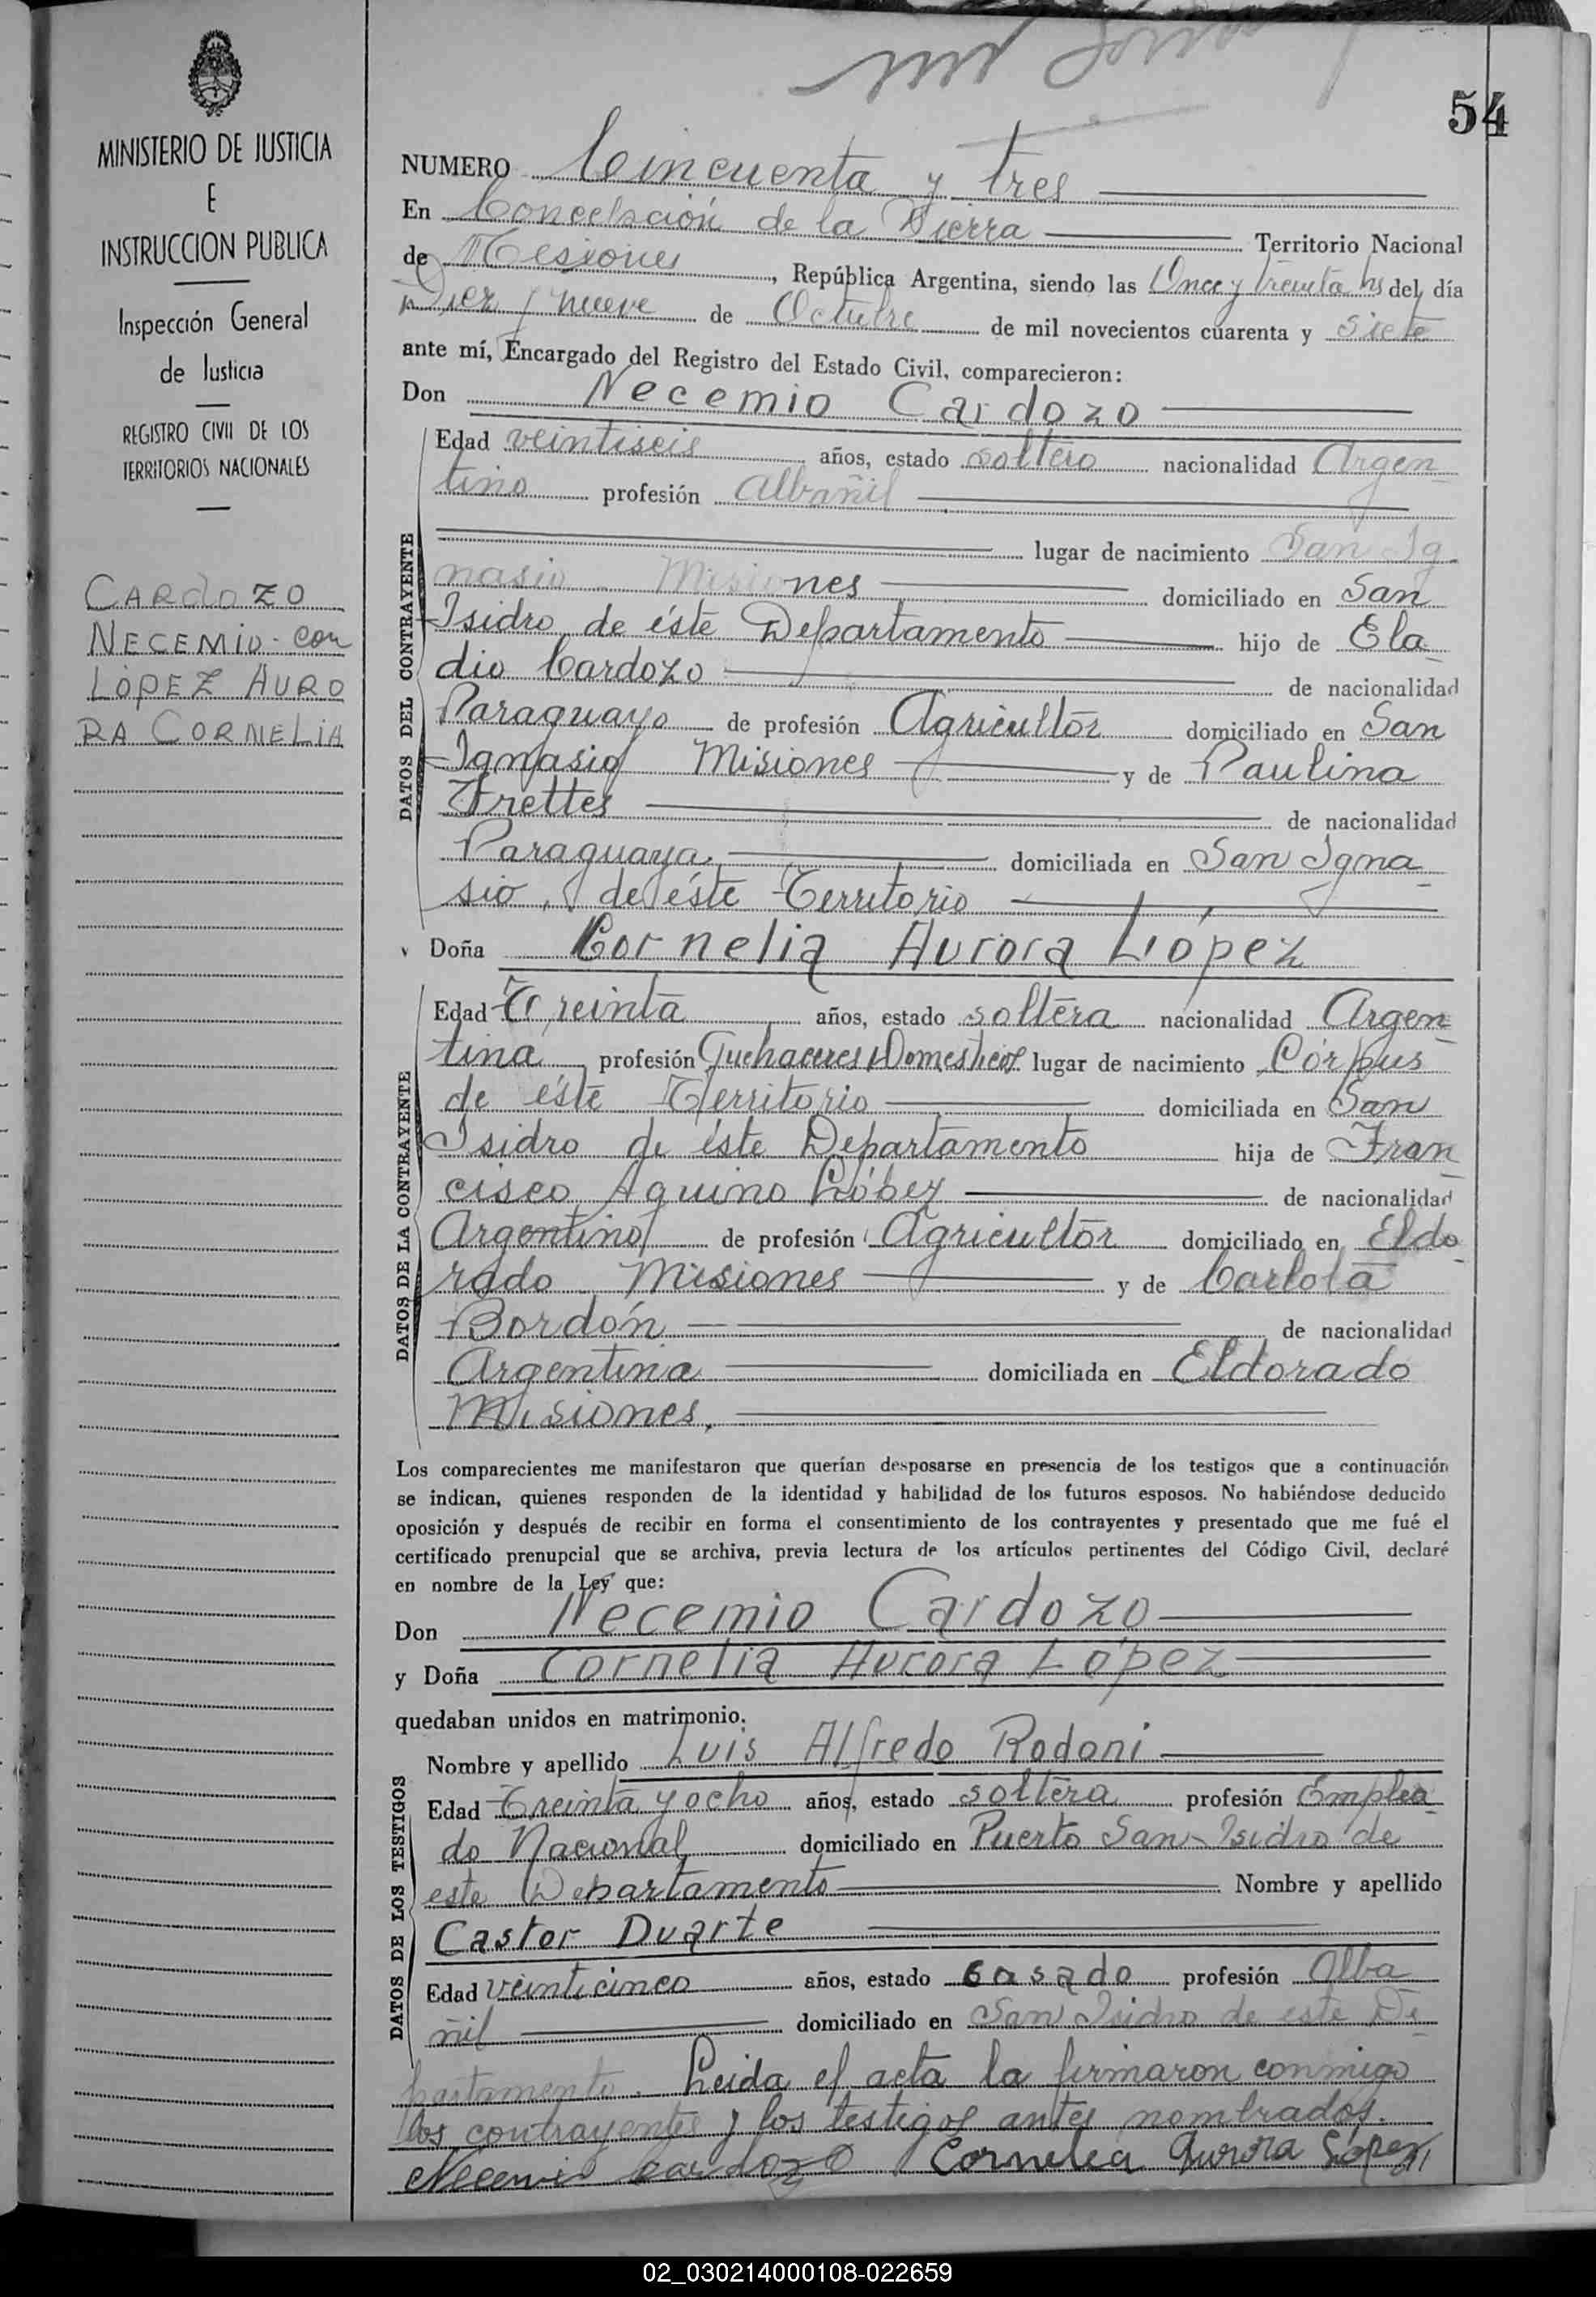 54
MINISTERIO DE JUSTICIA
E
INSTRUCCION PUBLICA
Inspección General
de Justicia
REGISTRO CIVIL DE LOS
TERRITORIOS NACIONALES
CARDOZO
NECEMIO con
LÓPEZ AURO
RA CORNELIA
NUMERO Cincuenta y tres
En Concepción de la Sierra Territorio Nacional
de Misiones, República Argentina, siendo las Once y treinta hs del día
Diez y nueve de Octubre de mil novecientos cuarenta y siete
ante mí, Encargado del Registro del Estado Civil, comparecieron:
Don Necemio Cardozo
DATOS DEL CONTRAYENTE
Edad veintiseis años, estado soltero nacionalidad Argen
tino profesión albañil
lugar de nacimiento San Ig
nasio - Misiones domiciliado en San
Isidro de éste Departamento hijo de Ela
dio Cardozo de nacionalidad
Paraguayo de profesión Agricultor domiciliado en San
Ignasio Misiones y de Paulina
Frettes de nacionalidad
Paraguaya domiciliada en San Igna
sio, de éste Territorio
y Doña Cornelia Aurora López
DATOS DE LA CONTRAYENTE
Edad Treinta años, estado soltera nacionalidad Argen
tina profesión Quehaceres Domesticos lugar de nacimiento Córpus
de éste Territorio domiciliada en San
Isidro de éste Departamento hija de Fran
cisco Aquino López de nacionalidad
Argentino de profesión Agricultor domiciliado en Eldo
rado Misiones y de Carlota
Bordón de nacionalidad
Argentina domiciliada en Eldorado
Misiones.
Los comparecientes me manifestaron que querían desposarse en presencia de los testigos que a continuación
se indican, quienes responden de la identidad y habilidad de los futuros esposos. No habiéndose deducido
oposición y después de recibir en forma el consentimiento de los contrayentes y presentado que me fué el
certificado prenupcial que se archiva, previa lectura de los artículos pertinentes del Código Civil, declaré
en nombre de la Ley que:
Don Necemio Cardozo
y Doña Cornelia Aurora López
quedaban unidos en matrimonio.
DATOS DE LOS TESTIGOS
Nombre y apellido Luis Alfredo Rodoni
Edad Treinta y ocho años, estado soltera profesión Emplea
do Nacional domiciliado en Puerto San Isidro de
este Departamento Nombre y apellido
Castor Duarte
Edad veinticinco años, estado casado profesión Alba
ñil domiciliado en San Isidro de este De
partamento. Leida el acta la firmaron conmigo
los contrayentes y los testigos antes nombrados.
Necemio Cardozo Cornelia Aurora López
02_030214000108-022659